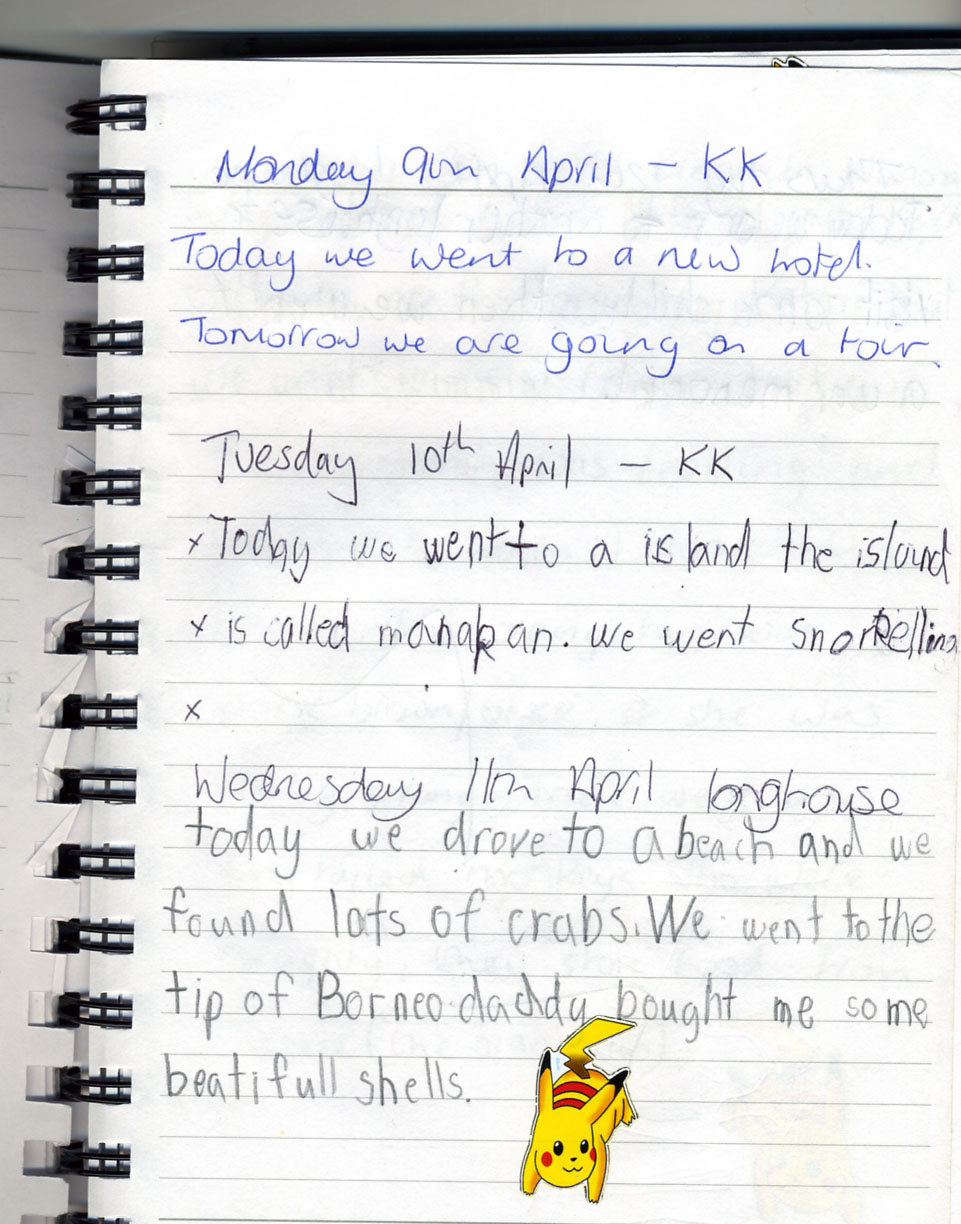 Monday 9th April - KK
Today we went to a new hotel.
Tomorrow we are going on a tour.
Tuesday 10th April - KK
x Today we went to a island the island
x is called manakan. we went snorkelling
x
Wednesday 11th April longhouse
today we drove to a beach and we
found lots of crabs. We went to the
tip of Borneo. daddy bought me some
beatifull shells.